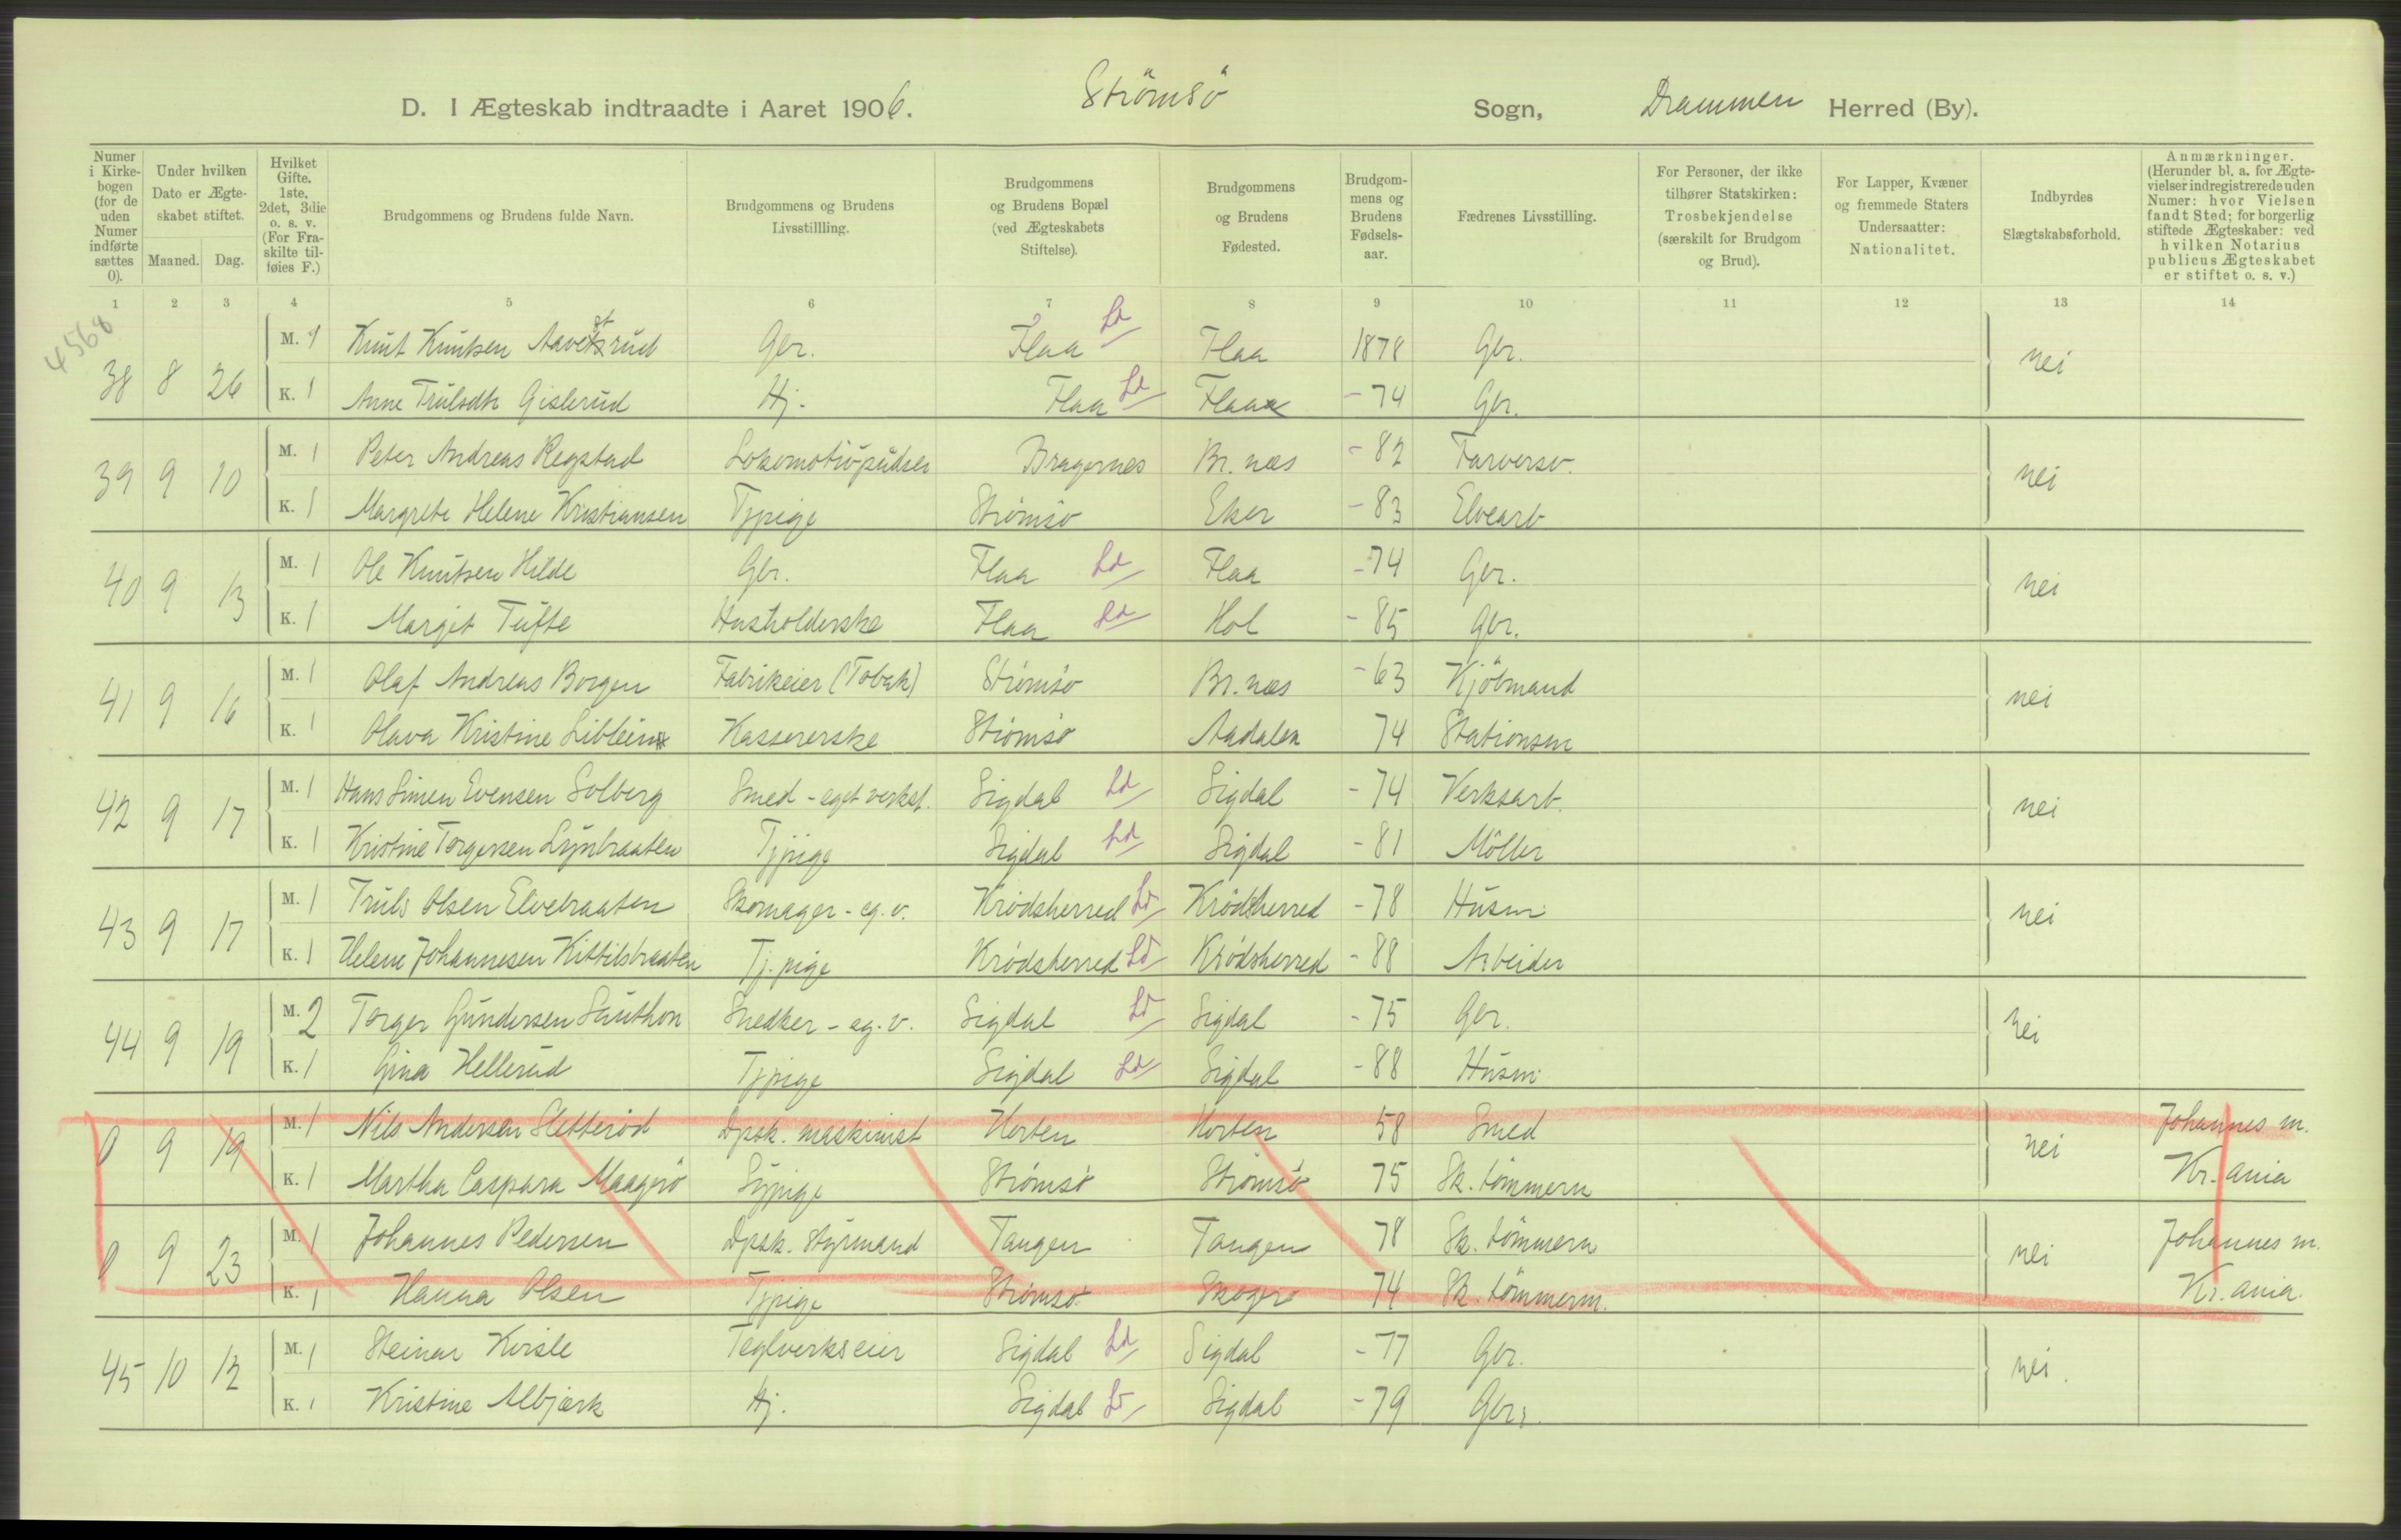 D. I Ægteskab indtraadte i Aaret 1906. Strömsö Sogn, Drammen Herred (By).
Numer i Kirkebogen (for de uden Numer indførte sættes 0). | Under hvilken Dato er Ægteskabet stiftet. Maaned. Dag. | Hvilket Gifte. 1ste, 2det, 3die o. s. v. (For Fraskilte tilføies F.) | Brudgommens og Brudens fulde Navn. | Brudgommens og Brudens Livsstillling. | Brudgommens og Brudens Bopæl (ved Ægteskabets Stiftelse). | Brudgommens og Brudens Fødested. | Brudgommens og Brudens Fødselsaar. | Fædrenes Livsstilling. | For Personer, der ikke tilhører Statskirken: Trosbekjendelse (særskilt for Brudgom og Brud). | For Lapper, Kvæner og fremmede Staters Undersaatter: Nationalitet. | Indbyrdes Slægtskabsforhold. | Anmærkninger. (Herunder bl. a. for Ægtevielser indregistrerede uden Numer: hvor Vielsen fandt Sted; for borgerlig stiftede Ægteskaber: ved hvilken Notarius publicus Ægteskabet er stiftet o. s. v.)
1 2 3 4 5 6 7 8 9 10 11 12 13 14
4568
38 8 26 M. 1 Knut Knutsen Gbr. Flaa Ld Flaa 1878 Gbr. nei
K. 1 Anne Trulsdtr Gislerud Hj. Flaa Ld Flaa - 74 Gbr.
39 9 10 M. 1 Peter Andreas Regstad Lokomotivpudser Bragernes Br. næs - 82 Farversv. nei
K. 1 Margrete Helene Kristiansen Tjpige Strömsö Eker - 83 Elvearb
40 9 13 M. 1 Ole Knutsen Hilde Gbr. Flaa Ld Flaa - 74 Gbr. nei
K. 1 Margit Tufte Husholderske Flaa Ld Hol - 85 Gbr.
41 9 16 M. 1 Olaf Andreas Borgen Fabrikeier (Tobak) Strömsö Br. næs - 63 Kjöbmand nei
K. 1 Olava Kristine Liblein Kassererske Strömsö Aadalen 74 Stationsm
42 9 17 M. 1 Hans Simen Evensen Solberg Smed - eget verkst. Sigdal Ld Sigdal - 74 Verksarb. nei
K. 1 Kristine Torgersen Tjpige Sigdal Ld Sigdal - 81 Möller
43 9 17 M. 1 Truls Olsen Elvebraaten Skomager - eg. v. Krödsherred Ld Krödsherred - 78 Husm nei
K. 1 Helene Johannesen Kittilsbraaten Tj. pige Krödsherred Ld Krödsherred - 88 Arbeider
44 9 19 M. 2 Torger Gundersen Snedker - eg. v. Sigdal Ld Sigdal - 75 Gbr. nei
K. 1 Gina Hellerud Tjpige Sigdal Ld Sigdal - 88 Husm
0 9 19 M. 1 Nils Andersen Sletteröd Dpsk. maskinist Horten Horten 58 Smed nei Johannes m.
K. 1 Martha Caspara Maagerö Sypige Strömsö Strömsö 75 Sk. tömmerm Kr. ania
0 9 23 M. 1 Johannes Pedersen Dpsk. Styrmand Tangen Tangen 78 Sk. tömmerm nei Johannes m.
K. 1 Hanna Olsen Tjpige Strömsö Skoger 74 Sk. tömmerm. Kr. ania.
45 10 12 M. 1 Steinar Kvisle Teglverkseier Sigdal Ld Sigdal - 77 Gbr. nei.
K. 1 Kristine Albjerk Hj. Sigdal Ld Sigdal - 79 Gbr.